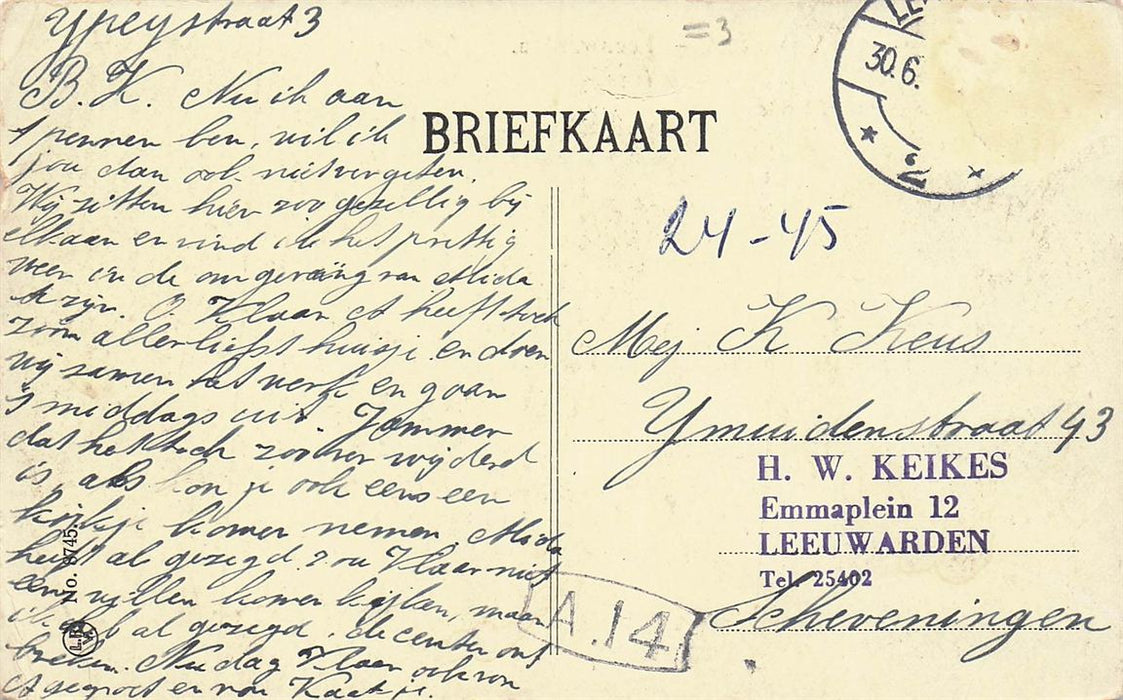 Ypeystraat 3
B. K. Nu ik aan
't pennen ben, wil ik
jou dan ook niet vergeten.
Wij zitten hier zoo gezellig bij
elkaar en vind ik het prettig
weer in de omgeving van Alida
te zijn. O. Klaar A heeft toch
zoon allerliefst huisje en doen
wij samen het werk en gaan
's middags uit. Jammer
dat het toch zoo ver wijderd
is, als kon je ook eens een
kijkje komen nemen. Alida
heeft al gezegd zou Klaar niet
eens willen komen kijken, maar
ik heb al gezegd, de centen ont
breken. Nu dag Klaar ook van
A gegroet en van Kaatje.
=3
BRIEFKAART
30.6.
24-45
Mej K Keus
Ymuidenstraat 43
H. W. KEIKES
Emmaplein 12
LEEUWARDEN
Tel. 25402
Scheveningen
A.14
No. 8745.